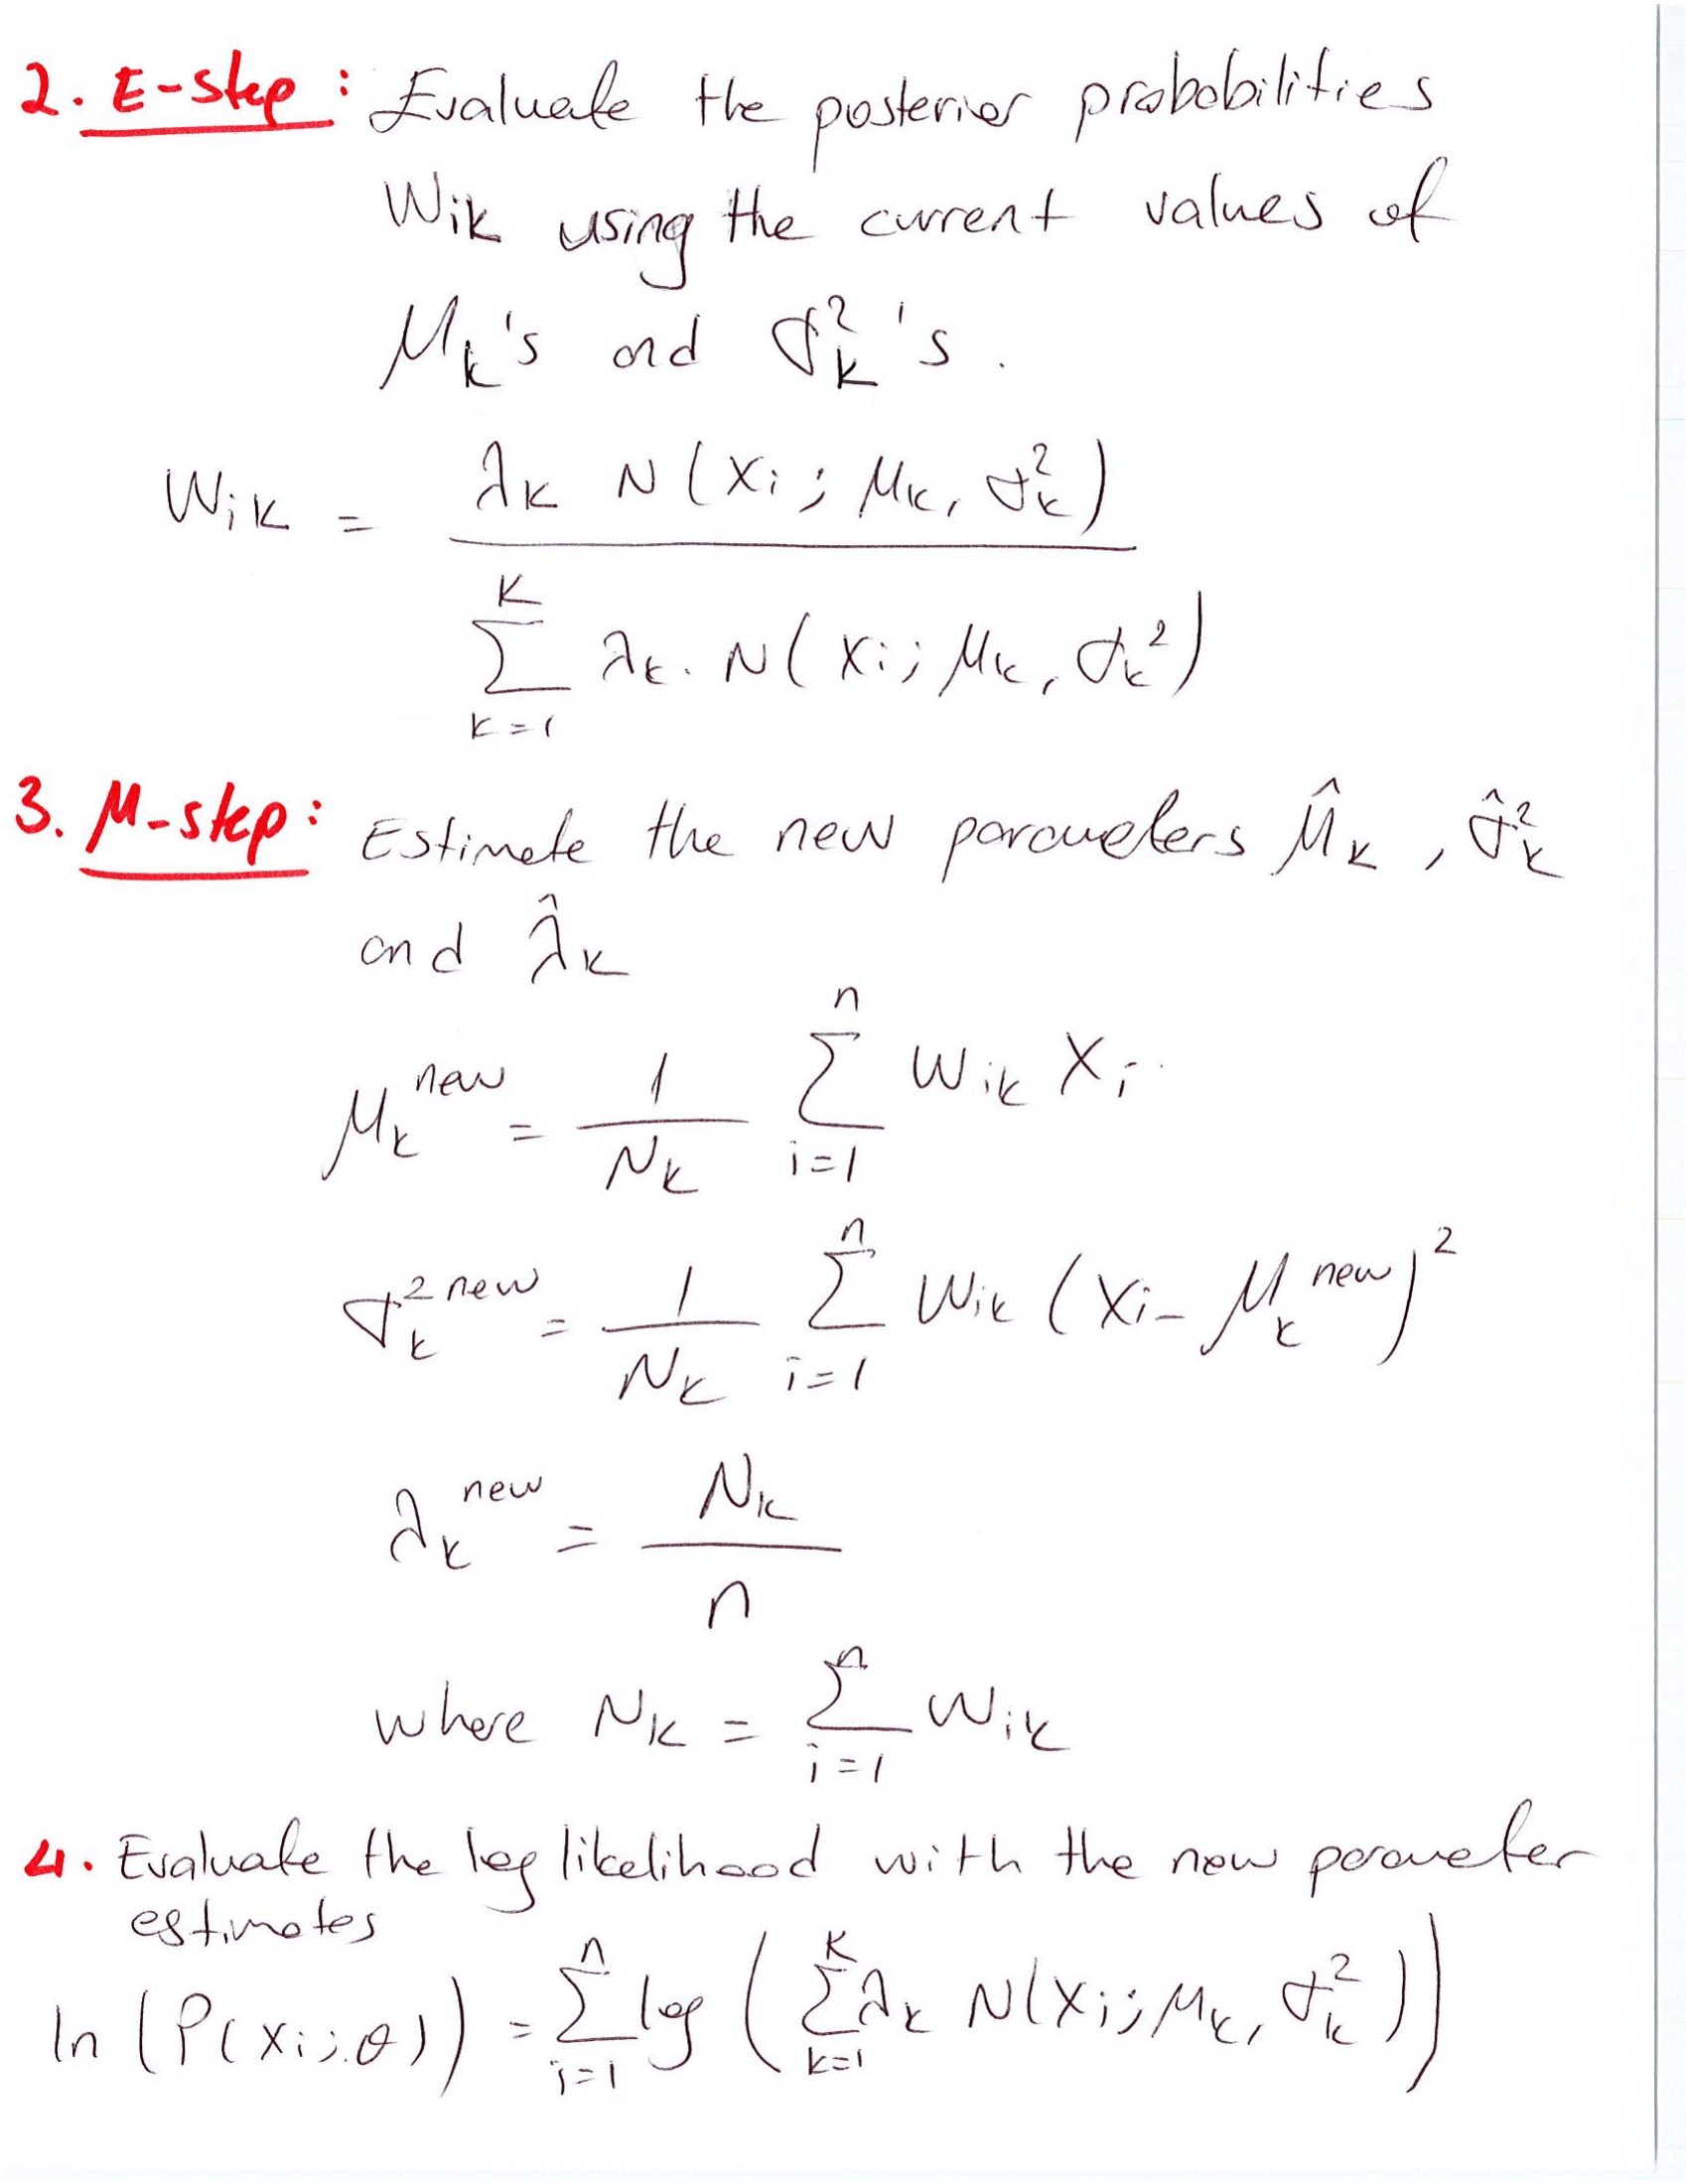 2. E-step: Evaluate the posterior probabilities
Wik using the current values of
μk's and σk²'s.
Wik = λk N(xi; μk, σk²) / ∑_{k=1}^{K} λk. N(xi; μk, σk²)
3. M-step: Estimate the new parameters μ̂k, σ̂k²
and λ̂k
μk^new = 1/Nk ∑_{i=1}^{n} Wik xi
σk^2 new = 1/Nk ∑_{i=1}^{n} Wik (xi - μk^new)²
λk^new = Nk / n
where Nk = ∑_{i=1}^{n} Wik
4. Evaluate the log likelihood with the new parameter
estimates
ln (P(xi; θ)) = ∑_{i=1}^{n} log ( ∑_{k=1}^{K} λk N(xi; μk, σk²))